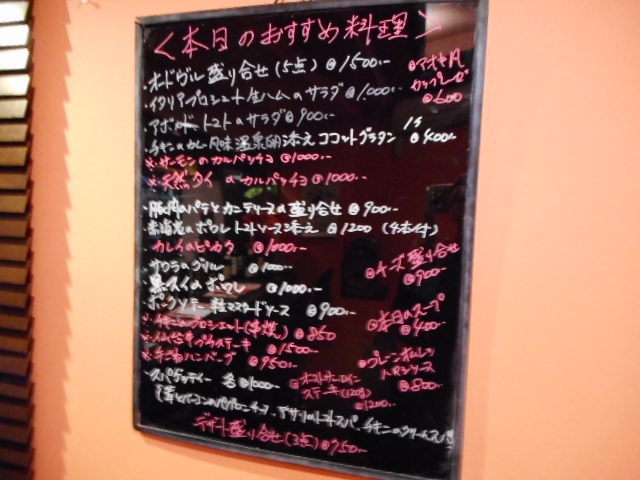 ＜本日のおすすめ料理＞
・オードヴル盛り合せ(5点) @1500..
・イタリアプロシュート生ハムのサラダ @1,000..
・アボカド、トマトのサラダ@900..
・チキンのカレー風味温泉卵添え ココットグラタン @400..
※・サーモンのカルパッチョ @1000..
※・天然タイのカルパッチョ @1000..
・豚肉のパテとカニテリーヌの盛り合せ @900..
・赤海老のポワレ トマトソース添え @1200 (4本付)
・カレイのピカタ @1000..
・サワラのグリル @1000..
・黒スイのポワレ @1000..
ポークソテー 粒マスタードソース @900..
※・チキンのブロシェット(串焼) @850
※・仙台牛プラステーキ @1500..
※・手ごねハンバーグ @950..
・スパゲッティー 各@1000..
デザート盛り合せ(3点) @750..
@アオキ風
カップレーゼ
@600
@チーズ盛り合せ
@900..
@本日のスープ
@400..
@プレーンオムレツ
トマトソース
@800..
ステーキ(120g)
@1200..